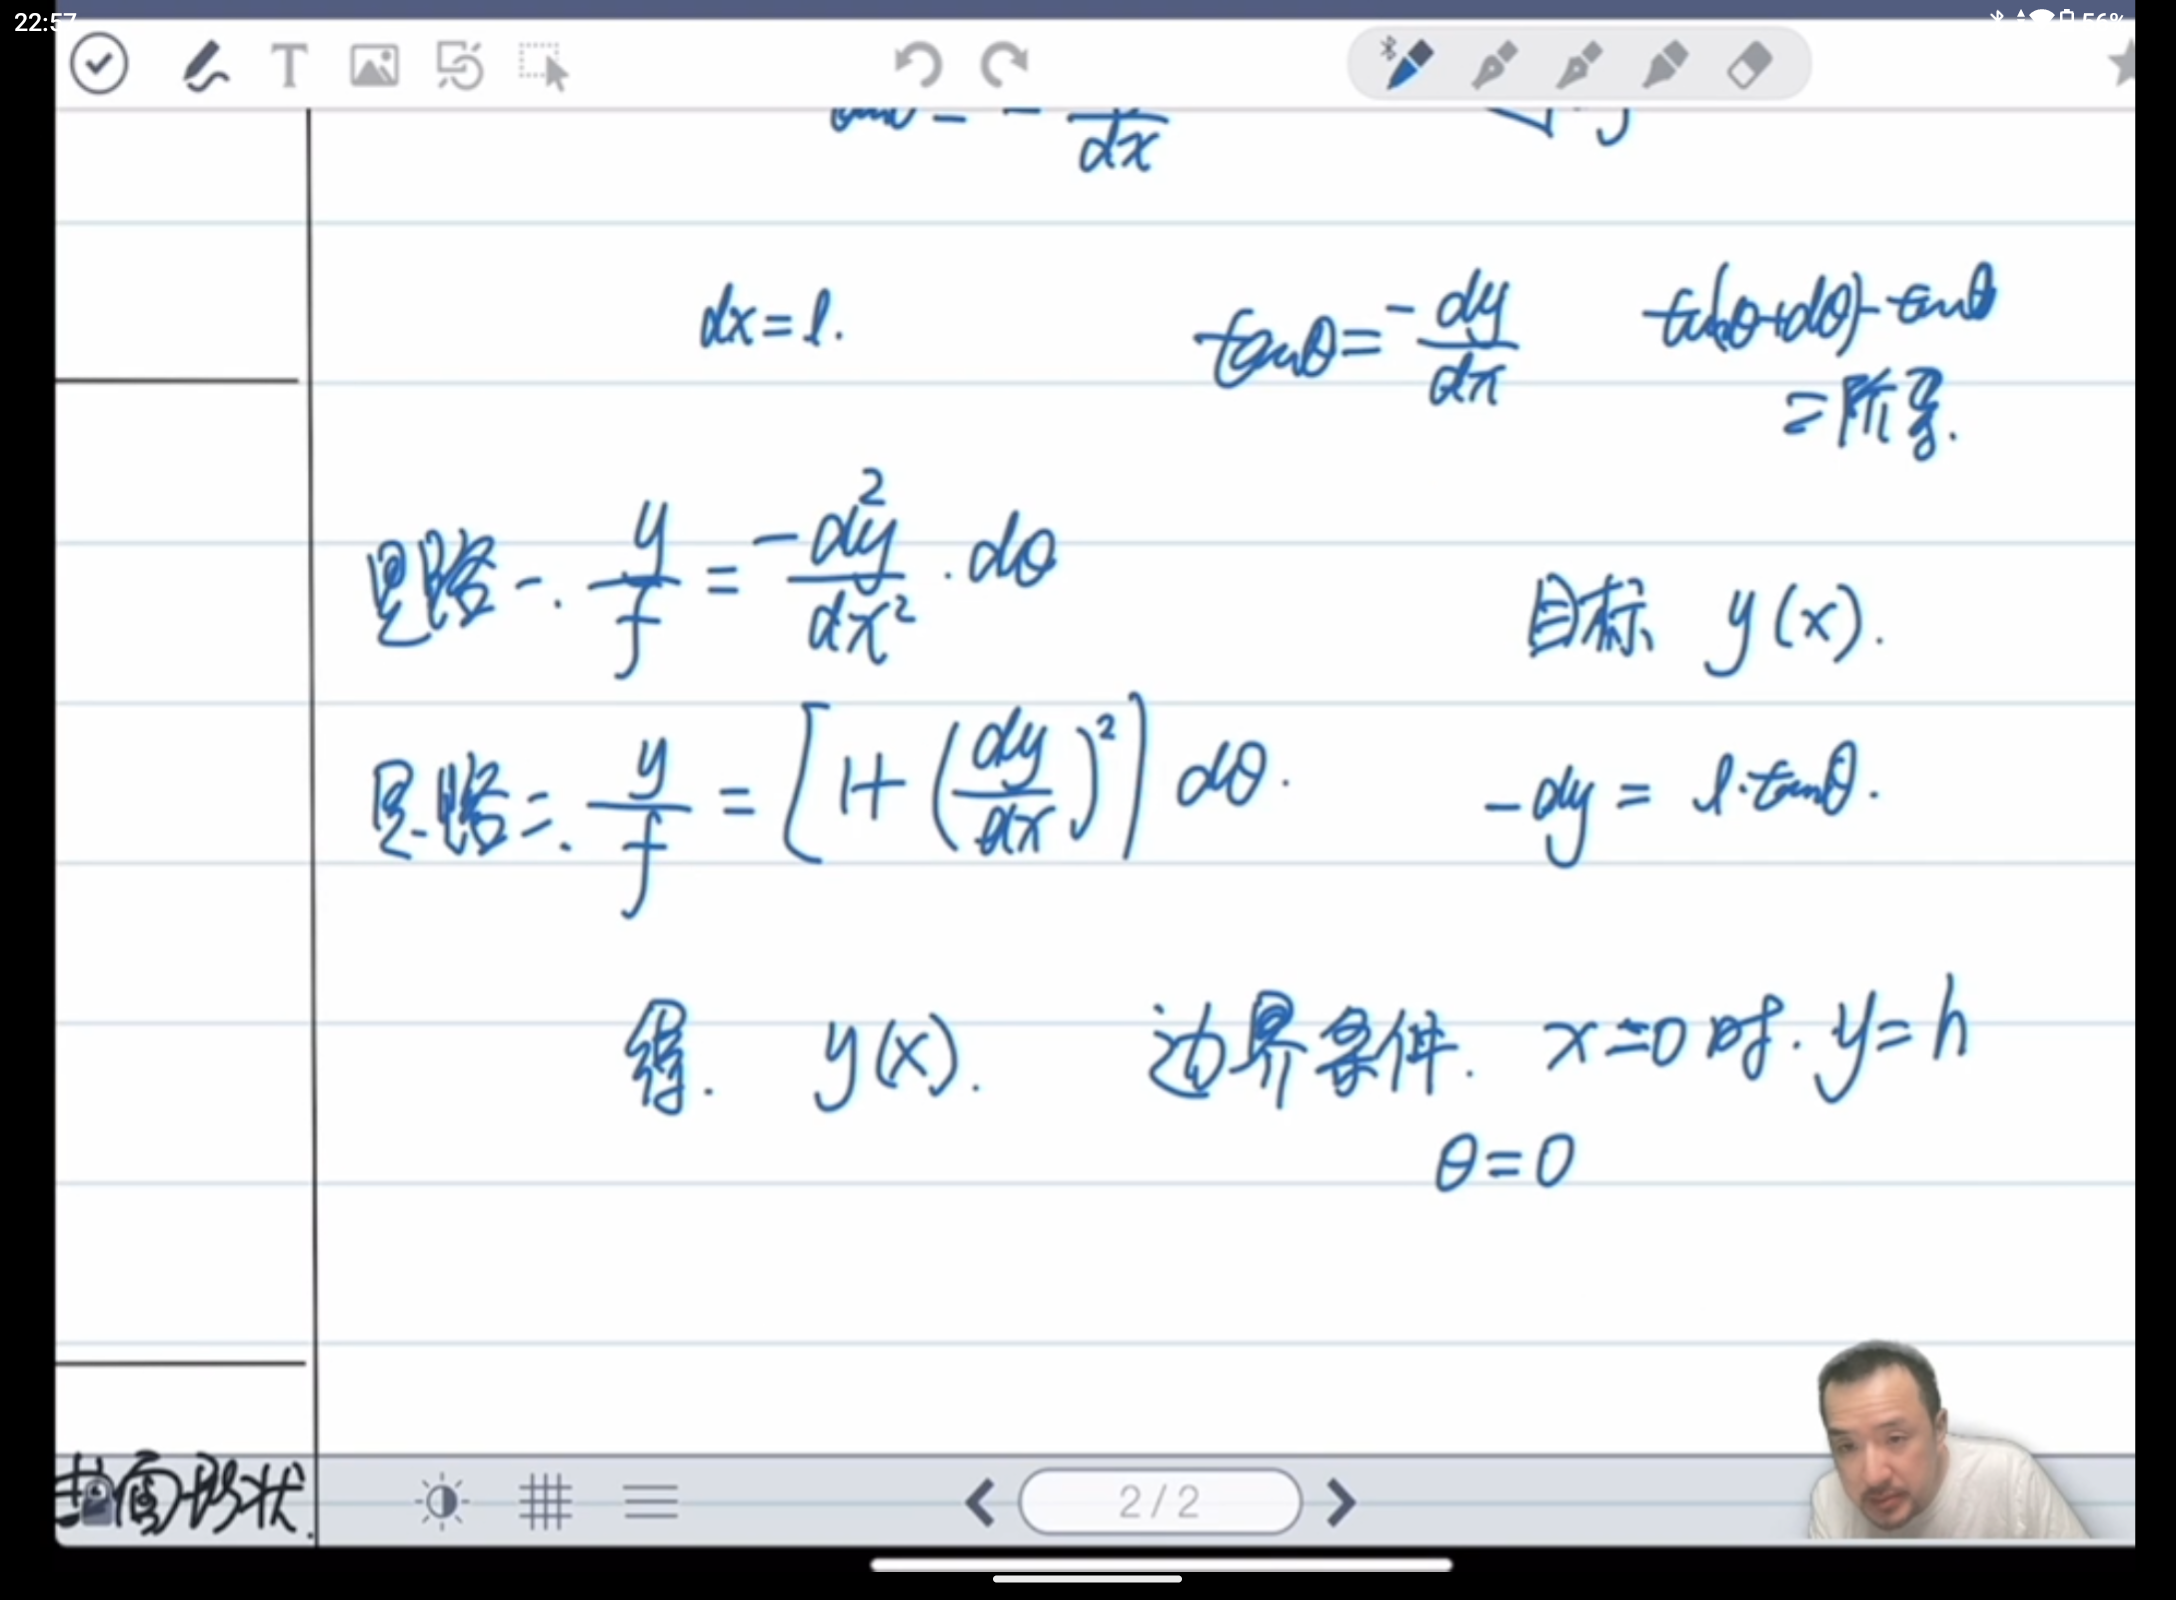 22:57
56%
tanθ = - dy/dx
dx = l.
tanθ = -dy/dx
tan(θ+dθ) - tanθ
= 所需.
思路一. y/f = -d²y/dx² · dθ
目标 y(x).
思路二. y/f = [1+(dy/dx)²] dθ.
-dy = l·tanθ.
得. y(x). 边界条件. x=0时. y=h
θ=0
面形状.
2/2